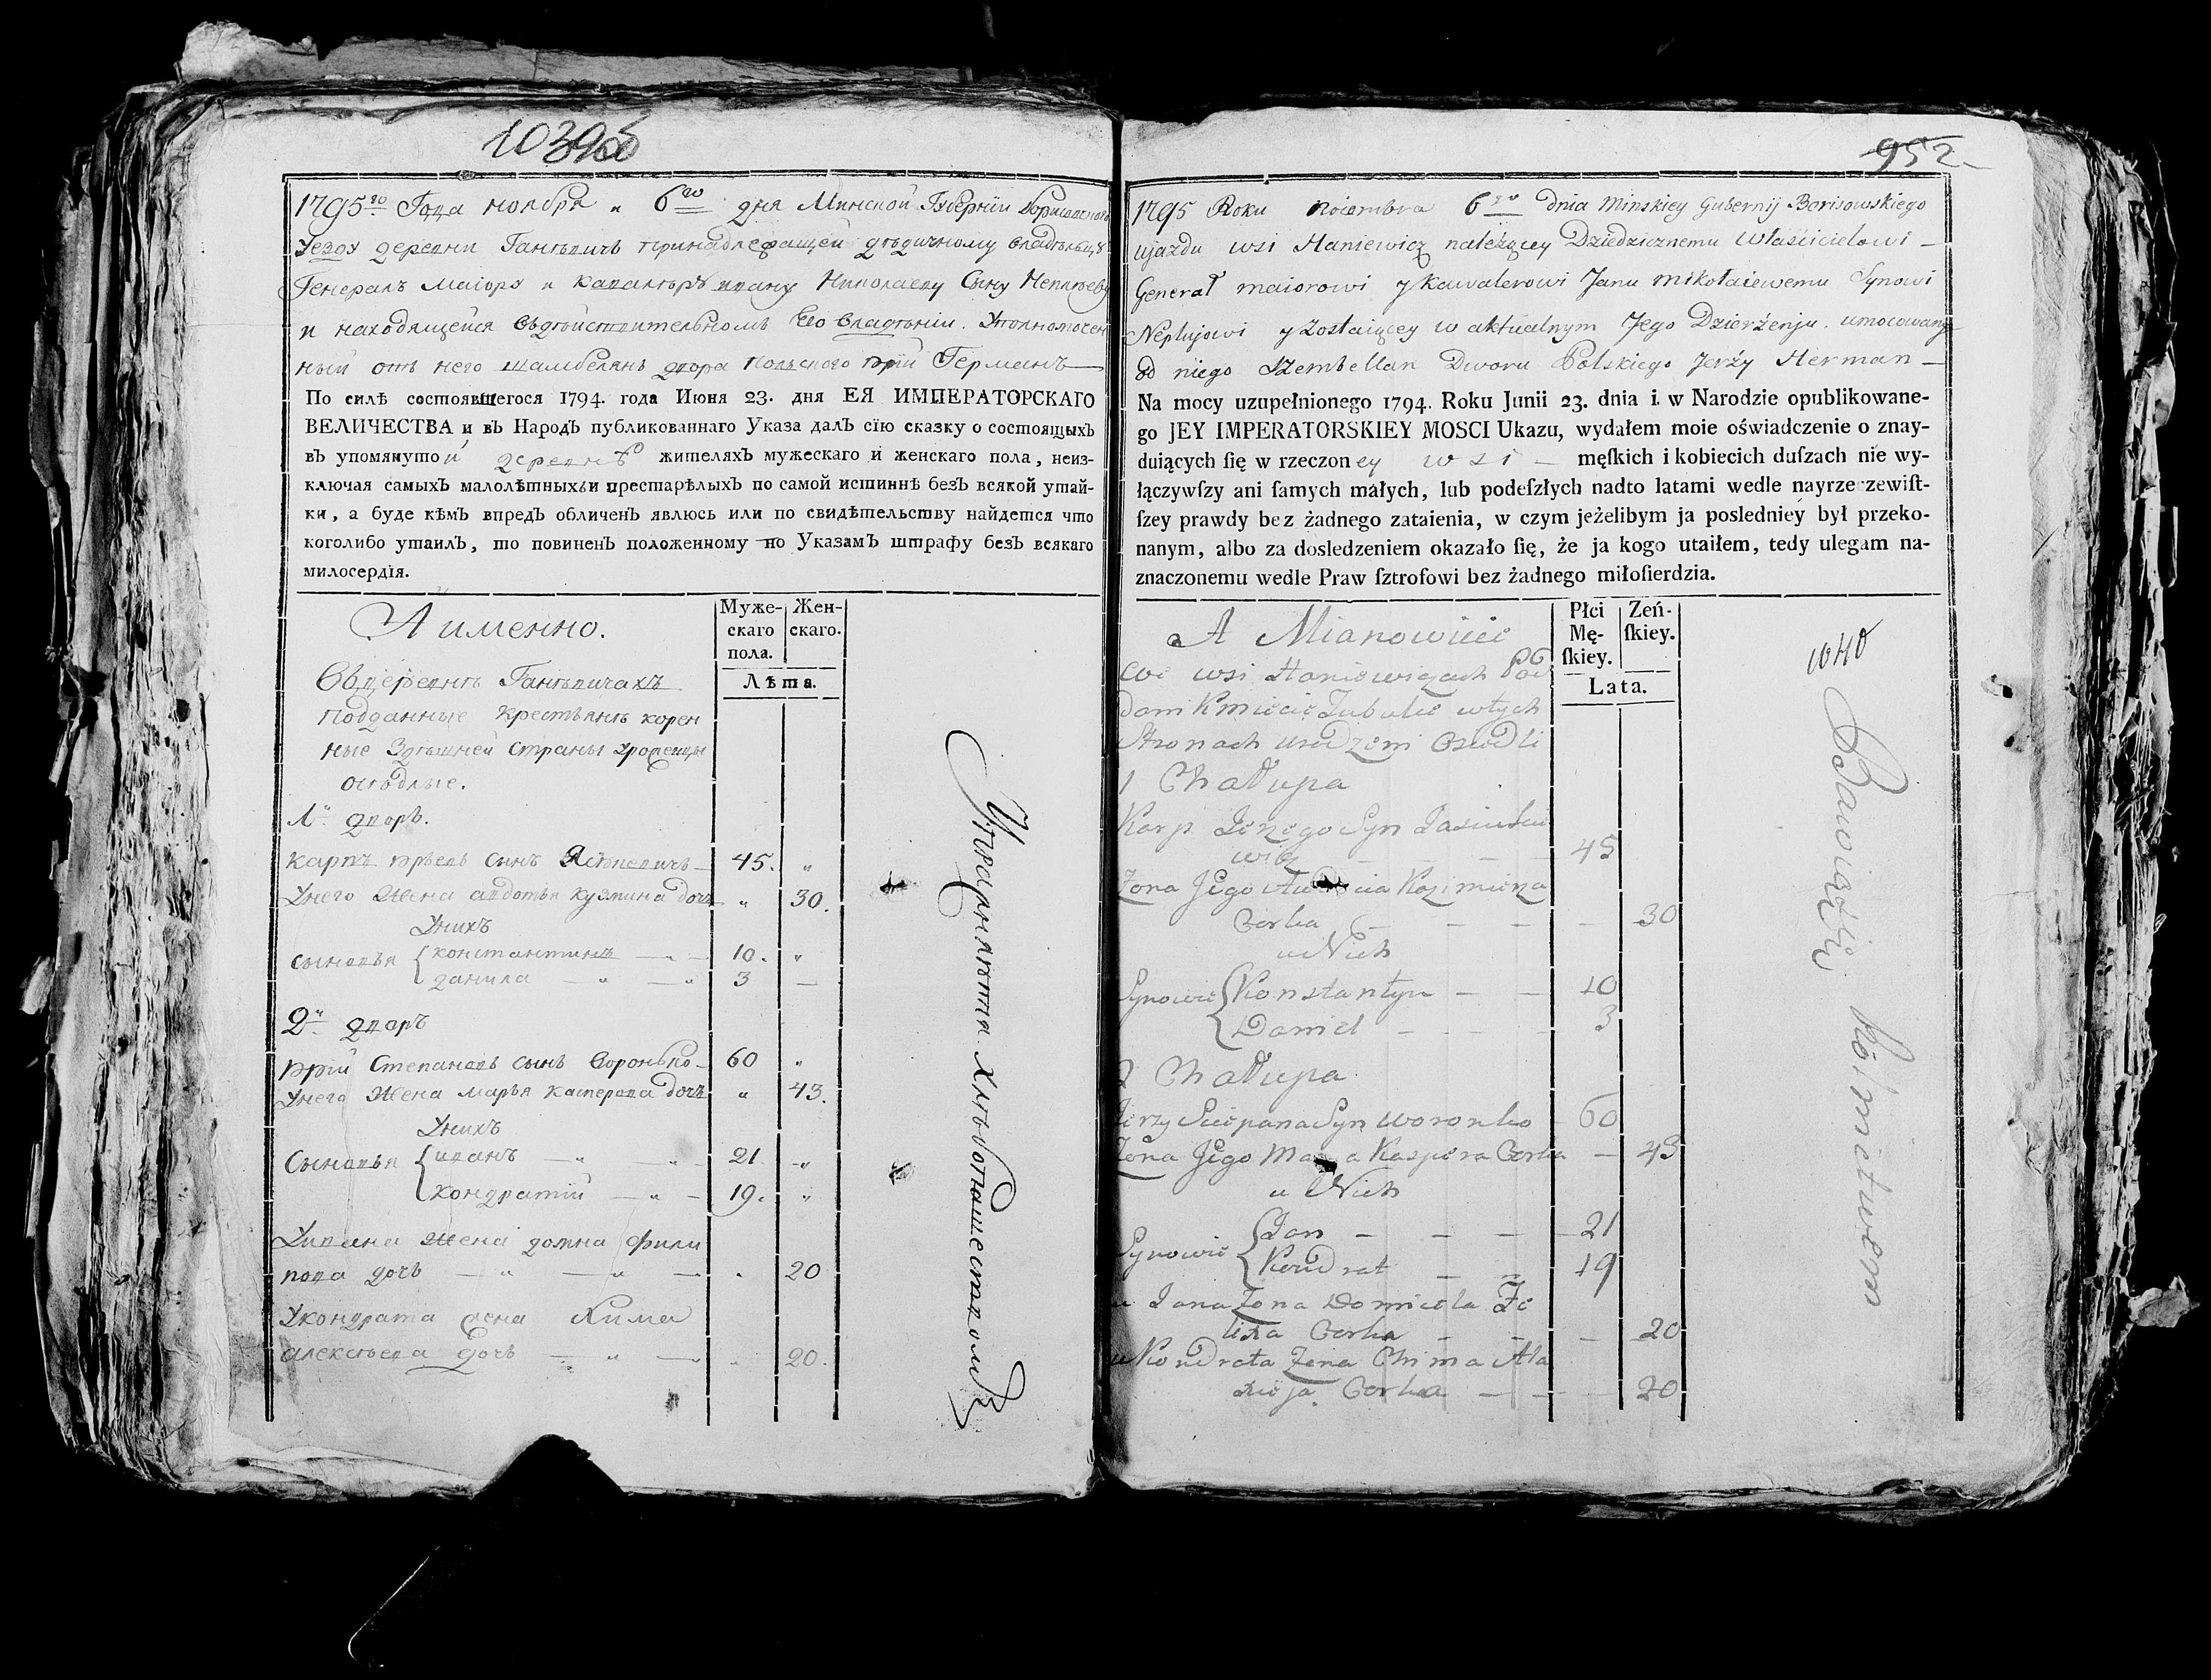 1795го Года ноября " 6го дня Минской Губернїи Борисовского
уезду деревни Ганѣвичъ принадлежащей дѣдичному владѣльцу
Генералъ маіору и кавалеру ивану Николаеву Сыну Неплюеву
и находящейся въдѣйствительномъ Его владѣніи. Уполномочен
ный отъ него шамбелянъ двора польского юрїй Германъ
По силѣ состоявшегося 1794. года Июня 23. дня ЕЯ ИМПЕРАТОРСКАГО
ВЕЛИЧЕСТВА и въ Народъ публикованнаго Указа далъ сїю сказку о состоящыхъ
въ упомянутой деревнѣ жителяхъ мужескаго и женскаго пола, неиз-
ключая самыхъ малолѣтныхъ и престарѣлыхъ по самой истиннѣ безъ всякой утай-
ки, а буде кѣмъ впредъ обличенъ явлюсь или по свидѣтельству найдется что
коголибо утаилъ, то повиненъ положенному по Указамъ штрафу безъ всякаго
милосердїя.
А именно.
Муже-скаго пола. Жен-скаго.
Лѣта.
Въдеревнѣ Ганѣвичахъ
подданные крестьянѣ корен
ные здѣшней страны уроженцы
осѣдлые.
1й дворъ.
карпъ юрьевъ сынъ Ясюкевичъ 45. "
Унего жена авдотья кузмина дочь " 30.
Унихъ
сыновья { константинъ 10. "
данила 3
2й дворъ
юрїй Степановъ сынъ Воронько 60 "
Унего жена марья касперова дочь " 43.
Унихъ
Сыновья { иванъ 21 "
кондратїй 19. "
Уивана жена домна фили
пова дочь " 20
Укондрата жена Химa
алексѣева дочь " 20.
952
1795 Roku Noiembra 6go dnia Minskiey Gubernij Borisowskiego
ujazdu wsi Haniewicz należącey Dziedzicznemu Właścicielowi
Generał maiorowi y kawalerowi Janu mikołaiewemu Synowi
Neplujowi y zostaiącey w aktualnym Jego Dzierżenju. umocowany
od niego Szembellan Dworu Polskiego Jerży Herman
Na mocy uzupełnionego 1794. Roku Junii 23. dnia i w Narodzie opublikowane-
go JEY IMPERATORSKIEY MOSCI Ukazu, wydałem moie oświadczenie o znay-
duiących ſię w rzeczoney wsi męſkich i kobiecich duſzach nie wy-
łączywſzy ani ſamych małych, lub podeſzłych nadto latami wedle nayrzeczewiſt-
ſzey prawdy bez żadnego zataienia, w czym jeżelibym ja posledniey był przeko-
nanym, albo za dosledzeniem okazało ſię, że ja kogo utaiłem, tedy ulegam na-
znaczonemu wedle Praw ſztrofowi bez żadnego miłoſierdzia.
A Mianowicie
Płci Mę-ſkiey. Zeń-ſkiey.
Lata.
We wsi Haniewiczach Pod
dani Kmiecie
Stronach urodzeni Osiedli
1 Chałupa
Karp Jerzego Syn
wicz 45
Zona Jego Kazimirza
Corka 30
u Nich
Synowie { Konstantyn 10
Daniel 3
2 Chałupa
Jerzy Sciepana Syn Woronko 60
Zona Jego Kaspera Corka 43
u Nich
Synowie { Jan 21
Kondrat 19
u Jana Zona Domicela Fe
lixa Corka 20
u Kondrata Zona Chima Ale
xieja Corka 20